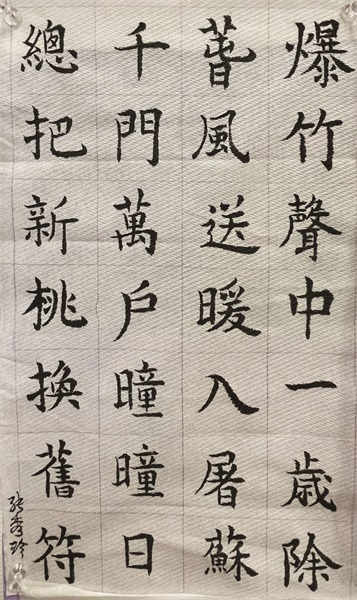 爆竹聲中一歲除
萅風送暖入屠蘇
千門萬戶曈曈日
總把新桃換舊符
張秀玲